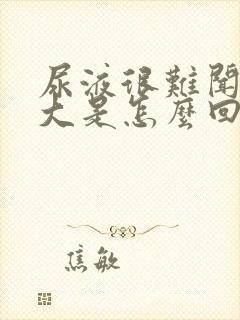 尿液很難聞
大是怎麼回
焦敏